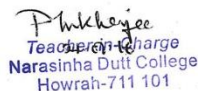 P Mukherjee
Teacher-in-Charge
Narasinha Dutt College
Howrah-711 101